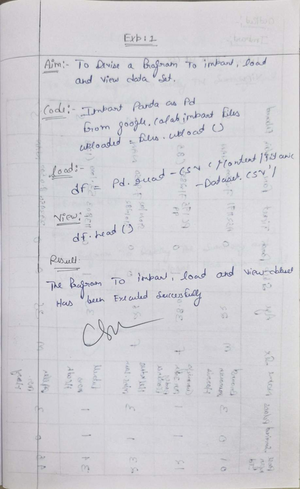 Exp: 1
Aim:- To Devise a Program To imbort, load
and view data set.
Code:- Imbort Panda as Pd
From google.colab imbort files
uploaded = files.upload ()
Load:-
df = Pd.read-csv ('/content/
-Dataset.csv')
View:-
df.head ()
Result:
The Program To imbort, load and view
Has been Executed Successfully